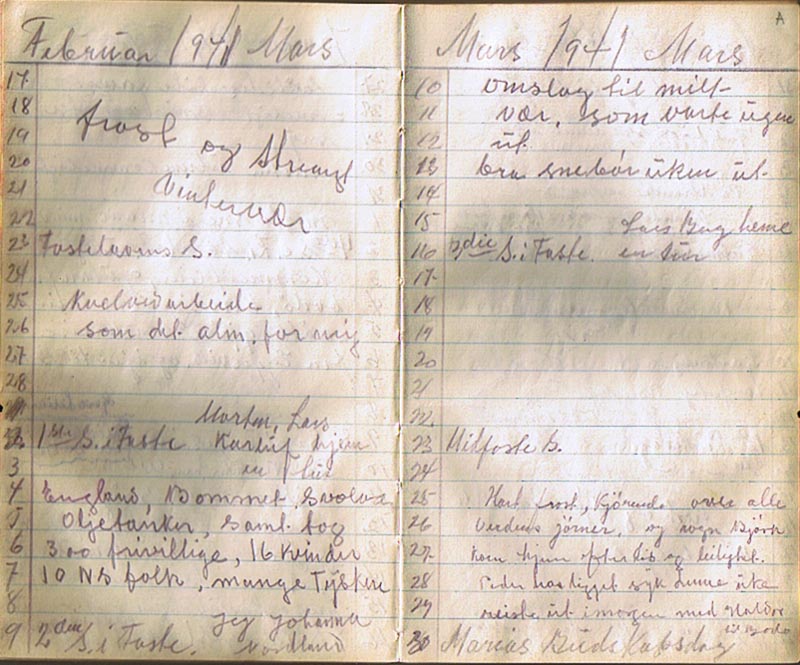 Februar 1941 Mars
17
18 frost
19 og strengt
20
21 Vintervær
22
23 Fastelavns S.
24
25 Kvelvedarbeide
26 som det alm. for mig
27
28
Morten, Lars
2 1ste S. i Faste Kartuf hjem
3 en tur
4 England, Bommet Svolvær
5 Oljetanker, samt tog
6 300 frivillige, 16 kvinder
7 10 NS folk, mange Tyskere
8 Jeg Johanna
9 2den S. i Faste. Nordland
A
Mars 1941 Mars
10 omslag til milt
11 vær, som varte ugen
12 ut
13 bra snebør uken ut
14
15 Lars Bag heme
16 3die S. i Faste. en tur
17
18
19
20
21
22
23 Midfaste S.
24
25 Hart frost, Kjørende over alle
26 Verdens jörner, og Bjørk
27 kom hjem efter og leilighet.
28 Peder har ligget syk denne uke
29 reiste ut imorgen med Haldor
til Bodø
30 Marias Budskabsdag